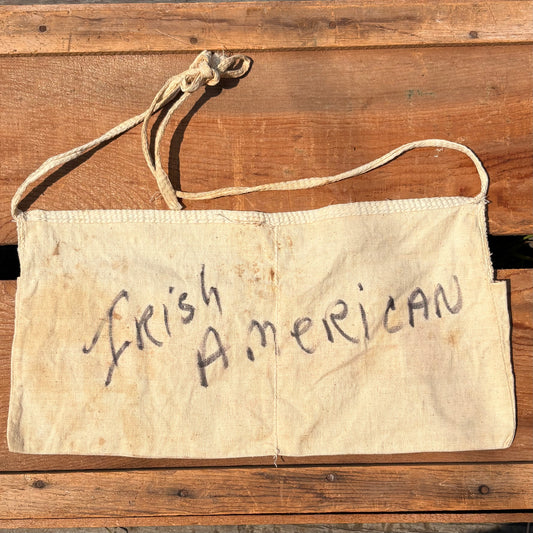 IRisH
AMeRICAN